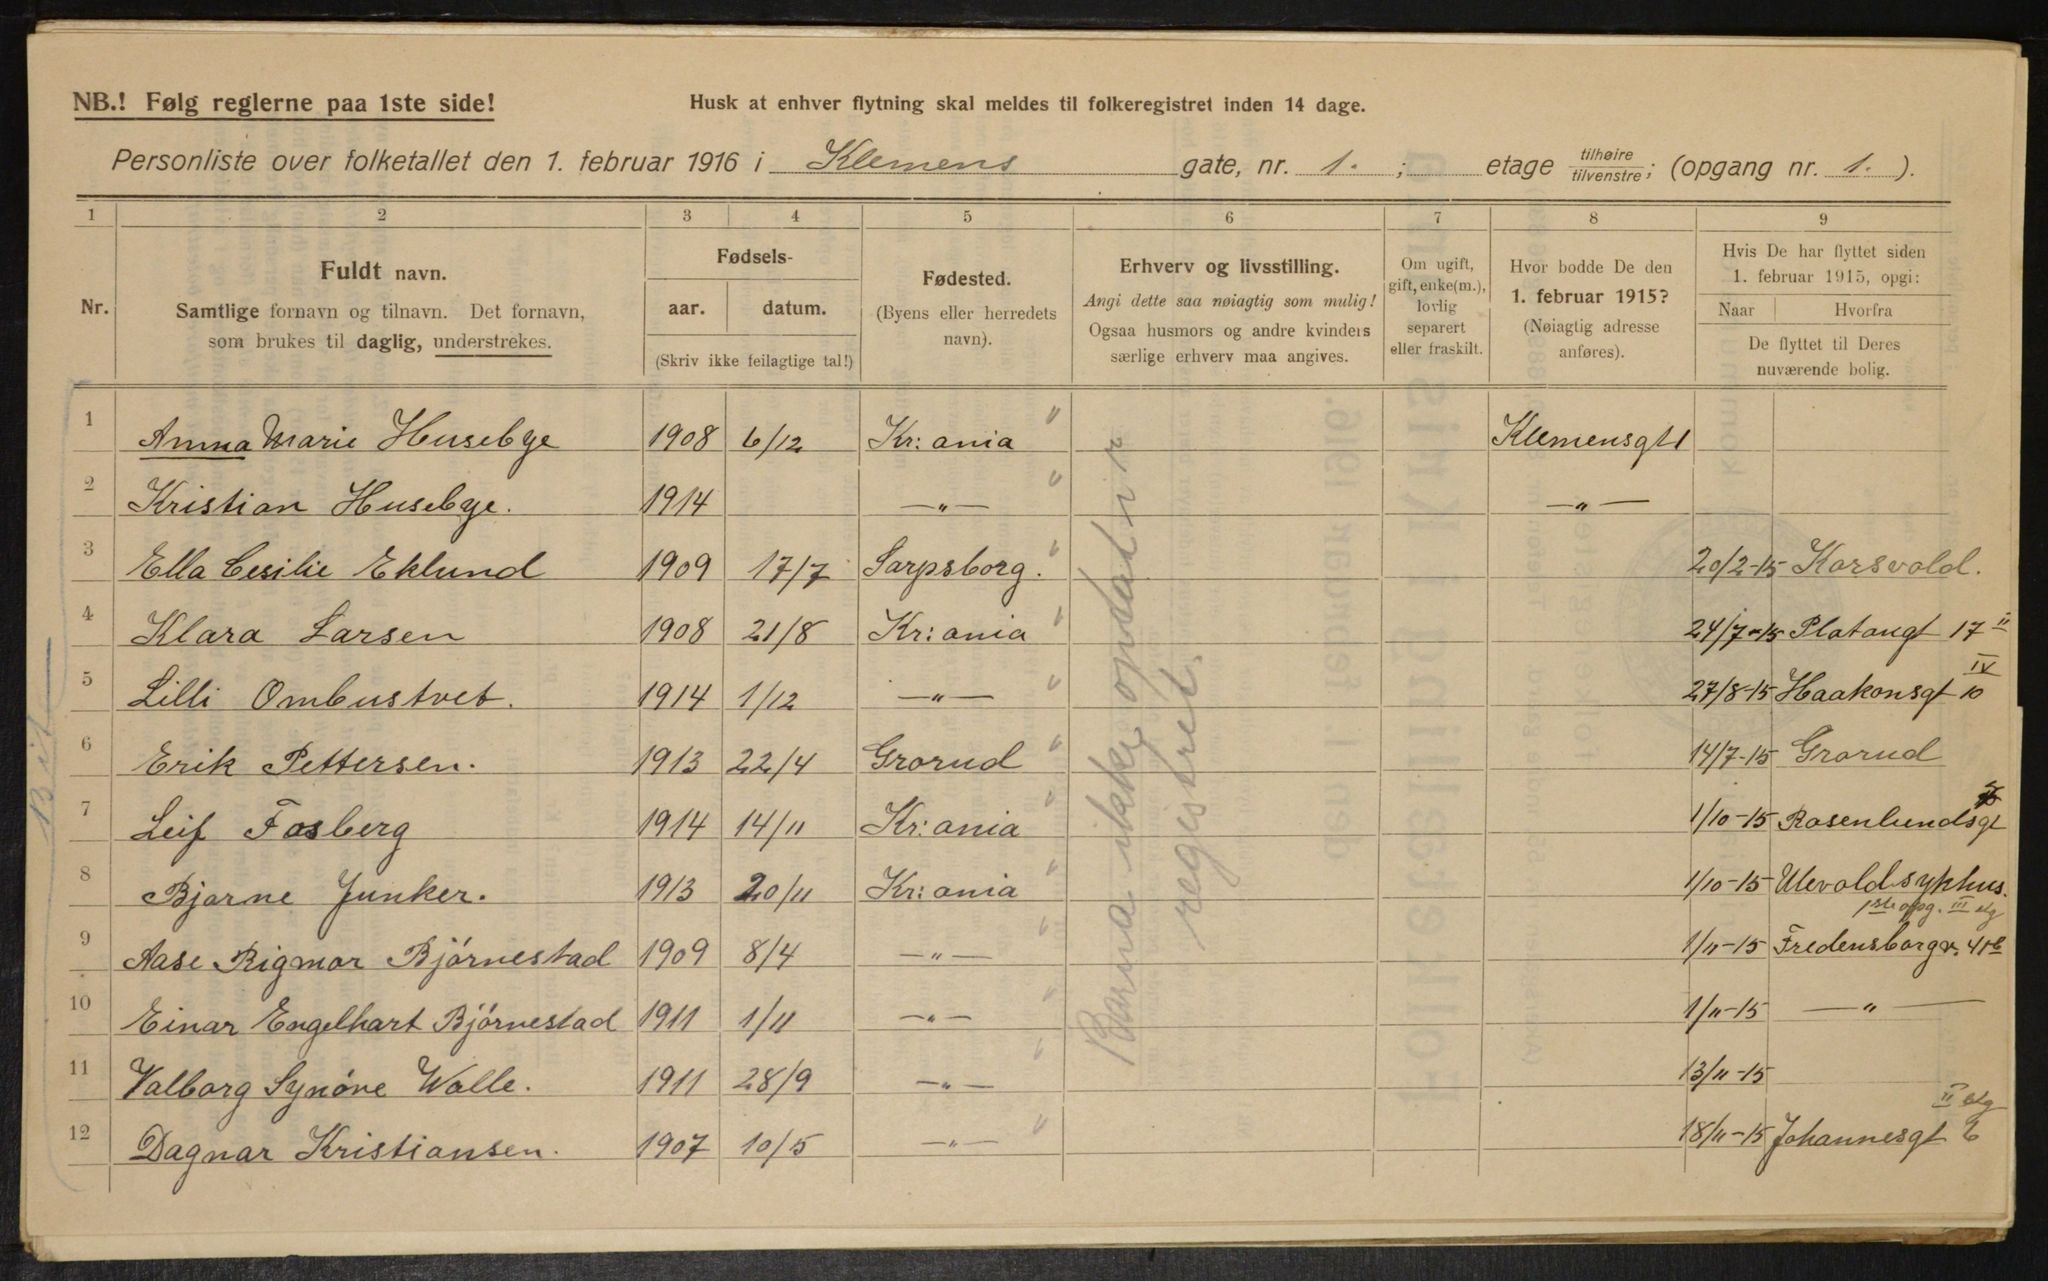 NB.! Følg reglerne paa 1ste side!
Husk at enhver flytning skal meldes til folkeregistret inden 14 dage.
Personliste over folketallet den 1. februar 1916 i Klemens gate, nr. 1. ; etage tilhøire tilvenstre ; (opgang nr. 1. ).
1 2 3 4 5 6 7 8 9
Nr.
Fuldt navn.
Samtlige fornavn og tilnavn. Det fornavn,
som brukes til daglig, understrekes.
Fødsels-
aar. datum.
(Skriv ikke feilagtige tal!)
Fødested.
(Byens eller herredets
navn).
Erhverv og livsstilling.
Angi dette saa nøiagtig som mulig!
Ogsaa husmors og andre kvinders
særlige erhverv maa angives.
Om ugift,
gift, enke(m.),
lovlig
separert
eller fraskilt.
Hvor bodde De den
1. februar 1915?
(Nøiagtig adresse
anføres).
Hvis De har flyttet siden
1. februar 1915, opgi:
Naar Hvorfra
De flyttet til Deres
nuværende bolig.
1 Anna Marie Husebye 1908 6/12 Kr:ania " Klemensgt 1
2 Kristian Husebye. 1914 —"— " —"—
3 Ella Cesilie Eklund 1909 17/7 Sarpsborg. " 20/2-15 Korsvold.
4 Klara Larsen 1908 21/8 Kr:ania " 24/7-15 Platougt 17 II
5 Lilli Ombustvet. 1914 1/12 —"— " 27/8-15 Haakonsgt 10 IV
6 Erik Pettersen. 1913 22/4 Grorud " 14/7-15 Grorud
7 Leif Fosberg 1914 14/11 Kr:ania " 1/10-15 Rosenlundsgt
8 Bjarne Junker. 1913 20/11 Kr:ania " 1/10-15 Ulevoldsykhus.
1ste opg. III etg
9 Aase Rigmor Bjørnestad 1909 8/4 —"— " 1/11-15 Fredensborgv. 41b
10 Einar Engelhart Bjørnestad 1911 1/11 —"— " 1/11-15 —"—
11 Valborg Synøve Walle. 1911 28/9 —"— " 13/11-15
II etg
12 Dagnar Kristiansen. 1907 10/5 —"— " 18/11-15 Johannesgt 6
Barna ikke opdat i
registret.